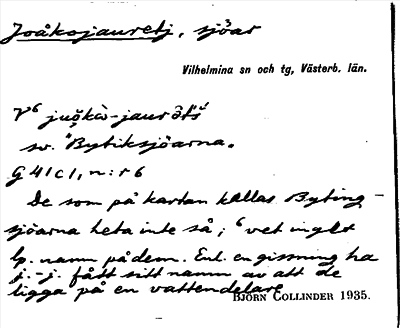 Joåkojauretj, sjöar
Vilhelmina sn och tg, Västerb. län.
V⁶
sv. "Bytiksjöarna.
G 41 c 1, n:r 6
De som på kartan kallas Byting-
sjöarna heta inte så; ⁶vet inget
lp. namn på dem. Enl. en gissning ha
j.-j. fått sitt namn av att de
ligga på en vattendelare
BJÖRN COLLINDER 1935.